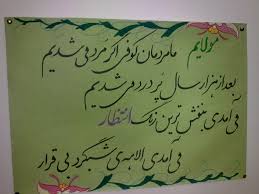 مولایم
ما مردمان کوفی اگر مرد می شدیم
بعد از هزار سال پر درد می شدیم
می آمدی بنفش ترین رنگ انتظار
می آمدی الاهه ی شبگرد بی قرار